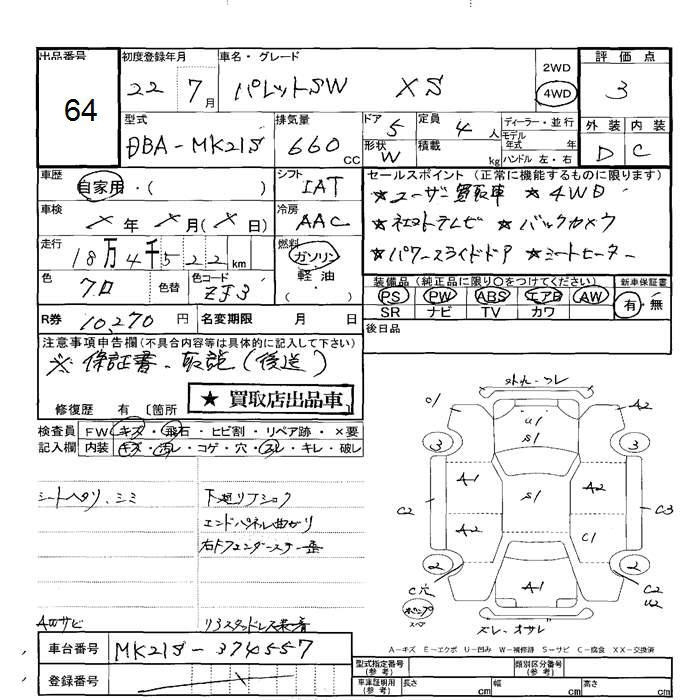 出品番号 初度登録年月 車名・グレード 評価点
64
22 7月 パレットSW XS
2WD
4WD
3
型式 排気量 ドア 定員 ディーラー・並行 外装 内装
DBA-MK21S 660cc 5 4人
モデル年式 年
形状 W 積載 kg ハンドル 左・右
D C
車歴 シフト セールスポイント (正常に機能するものに限ります)
自家用・( ) IAT
★ユーザー買取車 ★4WD
車検 冷房
×年 ×月(×日) AAC
★ネストテレビ ★バックカメラ
走行 燃料
18万4千522km ガソリン
★パワースライドドア ★シートヒーター
軽油
・( )
色 色替 色コード
クロ ZJ3
装備品 (純正品に限り○をつけてください) 新車保証書
PS PW ABS エアB AW 有・無
SR ナビ TV カワ
R券 10,270円 名変期限 月 日
後日品
注意事項申告欄(不具合内容等は具体的に記入して下さい)
※保証書・取説(後送)
★買取店出品車
修復歴 有 〔箇所 〕
検査員 FW キズ・飛石・ヒビ割・リペア跡・×要
記入欄 内装 キズ・汚レ・コゲ・穴・スレ・キレ・破レ
シートヘタリ、シミ
下廻リフショク
エンドパネル曲ガリ
右トフェンダーステー歪
4Wサビ
リヤスタッドレス装着
車台番号 MK21S-374557
登録番号
外れ・ズレ
U1
S1
A2
3 3
A1 S1 A2
C2 C3
A2 C1
2 2
C穴
A1
C2
U2
スペア
ズレ・オサレ
A-キズ E-エクボ U-凹み W-補修跡 S-サビ C-腐食 XX-交換済
型式指定番号(参考) 類別区分番号(参考)
車庫証明用(参考) 長さ cm 幅 cm 高さ cm